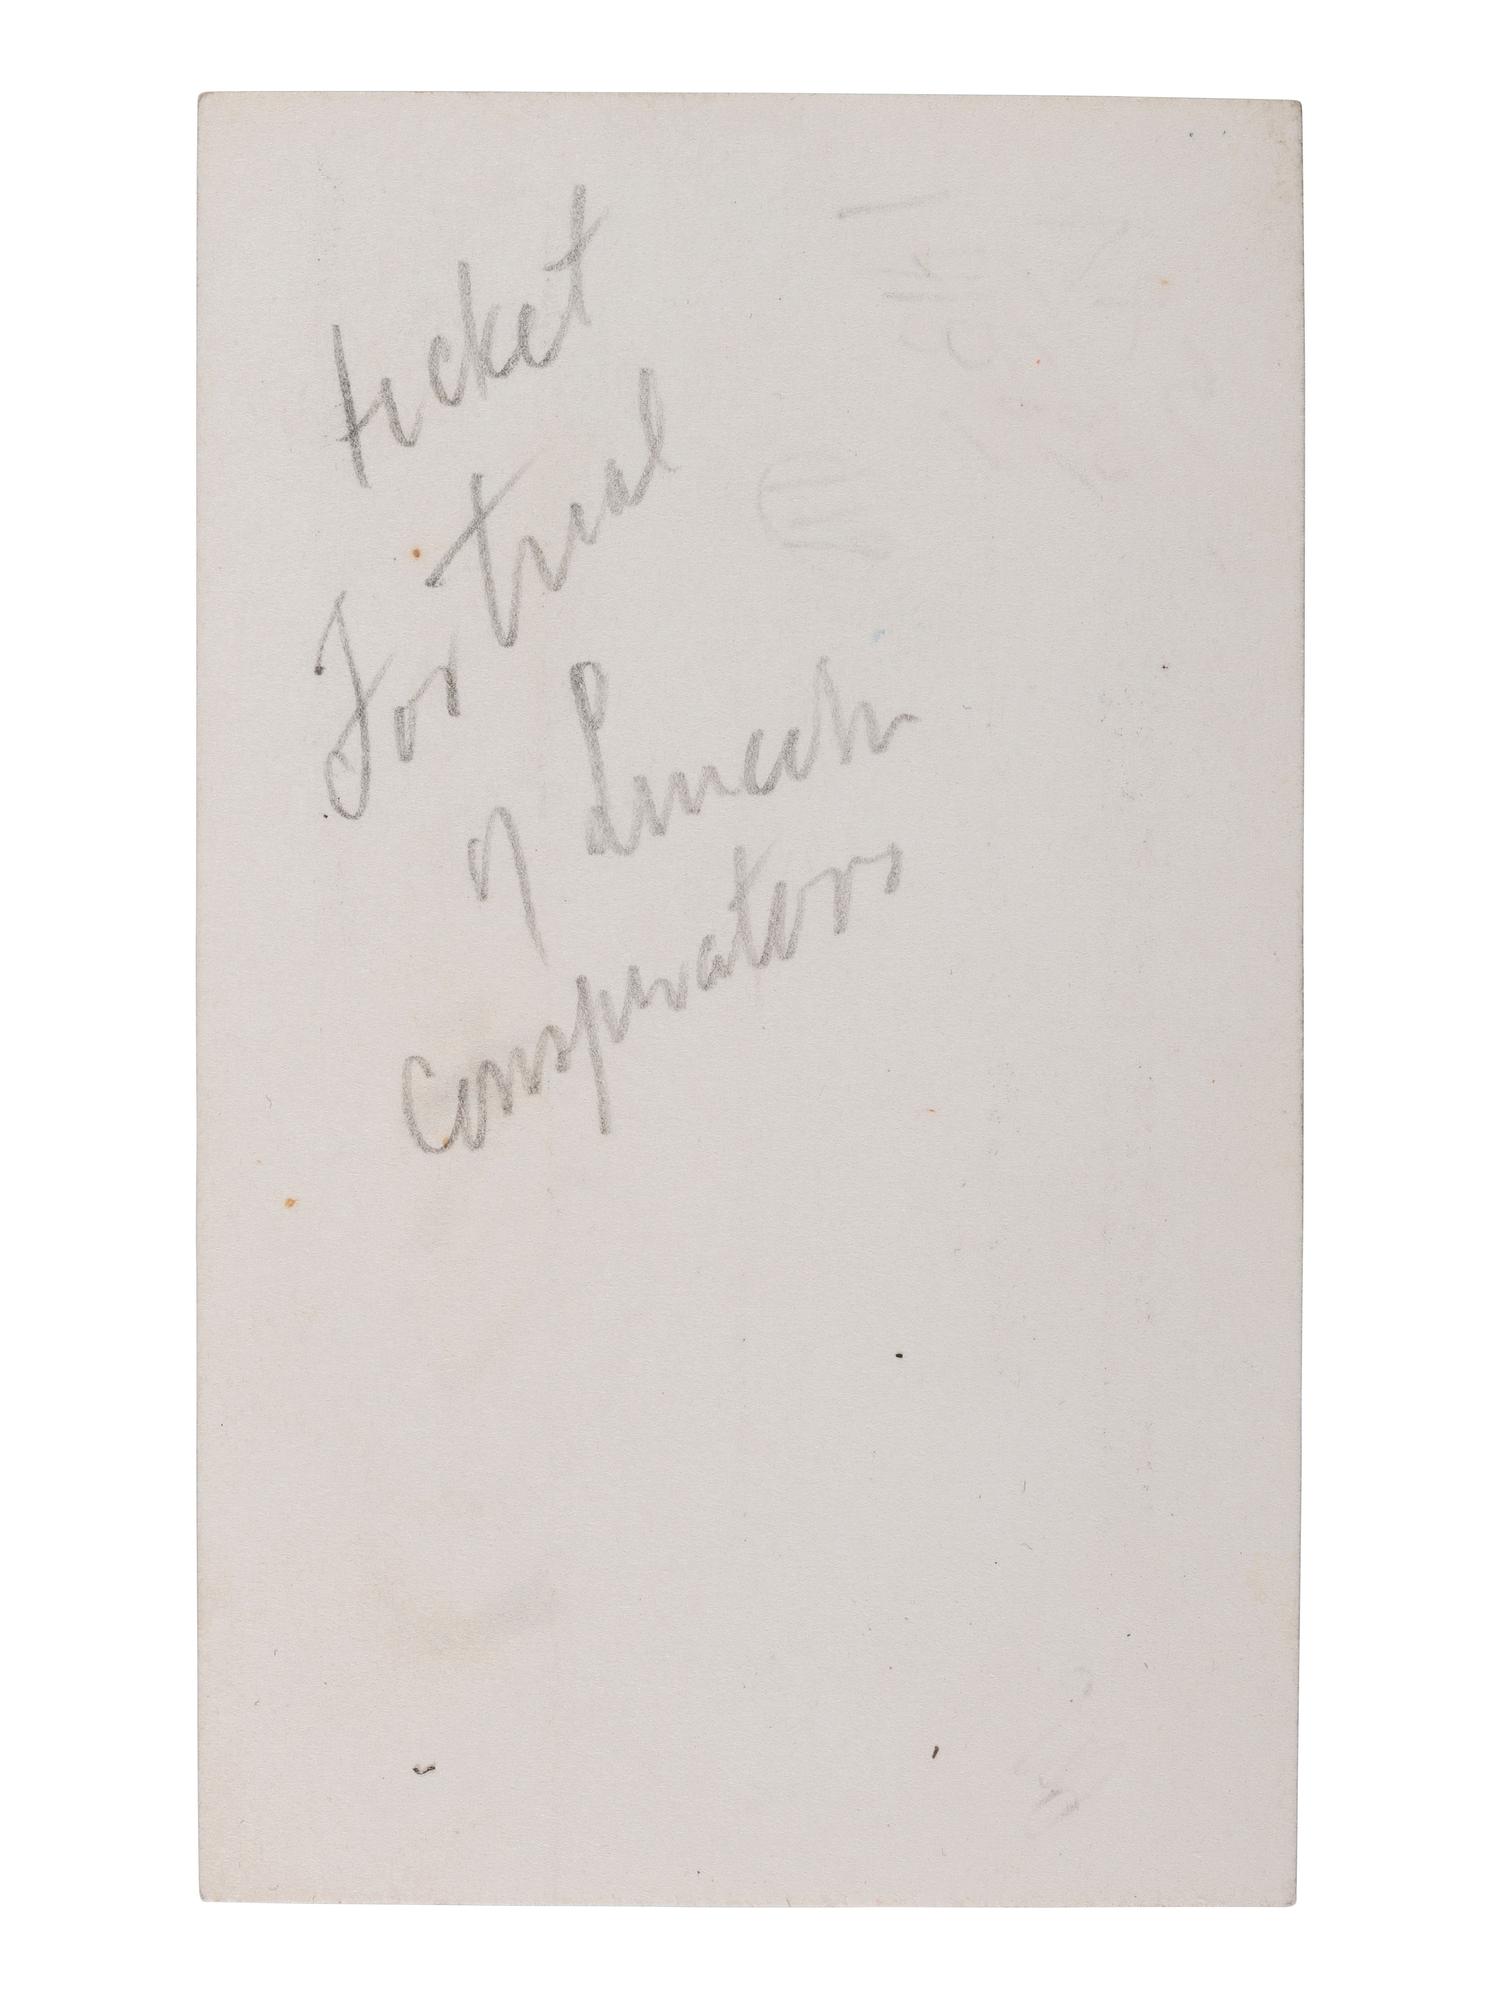 ticket
For trial
of Lincoln
Conspirators